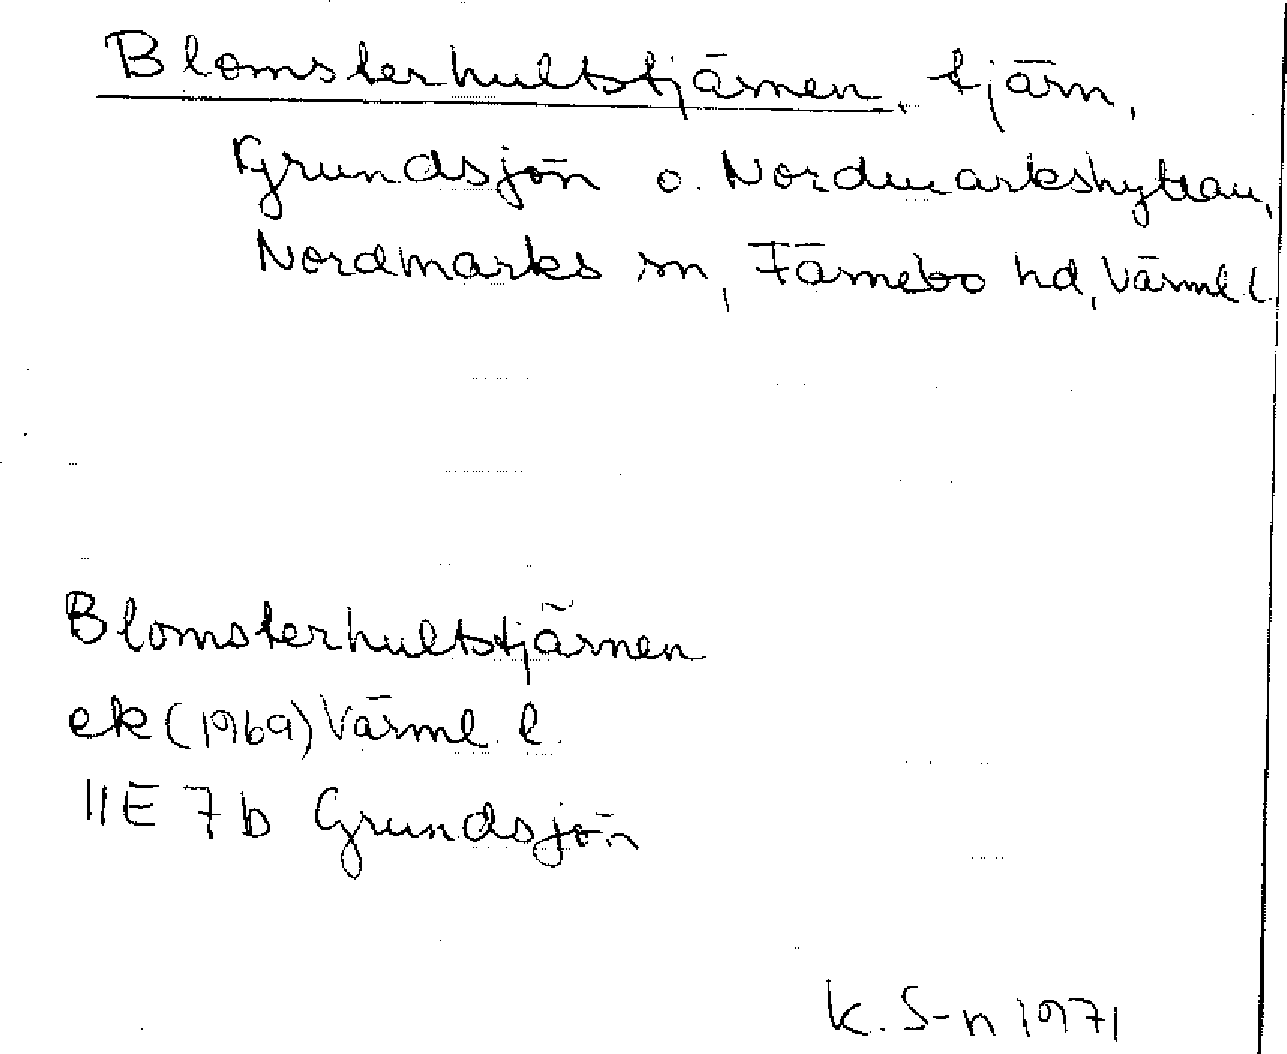 Blomsterhultstjärnen, tjärn,
Grundsjön o. Nordmarkshyttan,
Nordmarks sn, Färnebo hd, Värml l.
Blomsterhultstjärnen
ek (1969) Värml. l.
11E 7b Grundsjön
K. S-n 1971